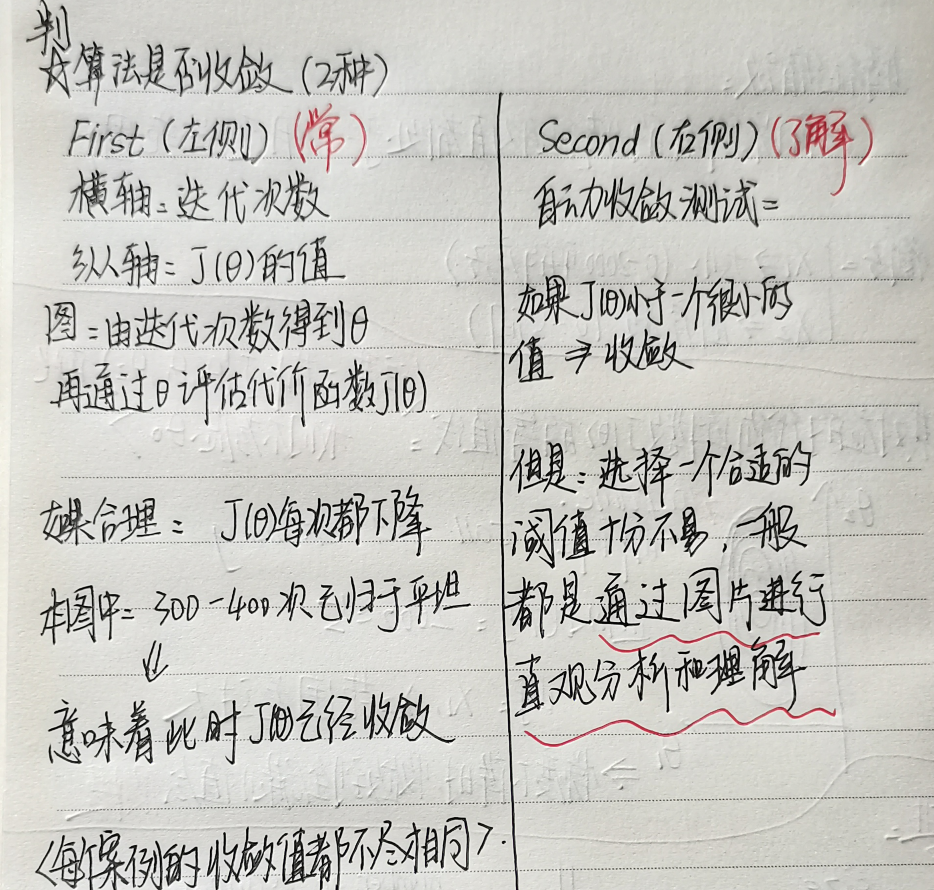 判
☆算法是否收敛（2种）
First（左侧）（常）
横轴：迭代次数
纵轴：J(θ)的值
图：由迭代次数得到θ
再通过θ评估代价函数J(θ)
如果合理： J(θ)每次都下降
本图中：300-400次已归于平坦
⇓
意味着此时J(θ)已经收敛
〈每个案例的收敛值都不尽相同〉.
Second（右侧）（了解）
自动收敛测试：
如果J(θ)小于一个很小的
值⇒收敛
但是：选择一个合适的
阈值十分不易，一般
都是通过图片进行
直观分析和理解